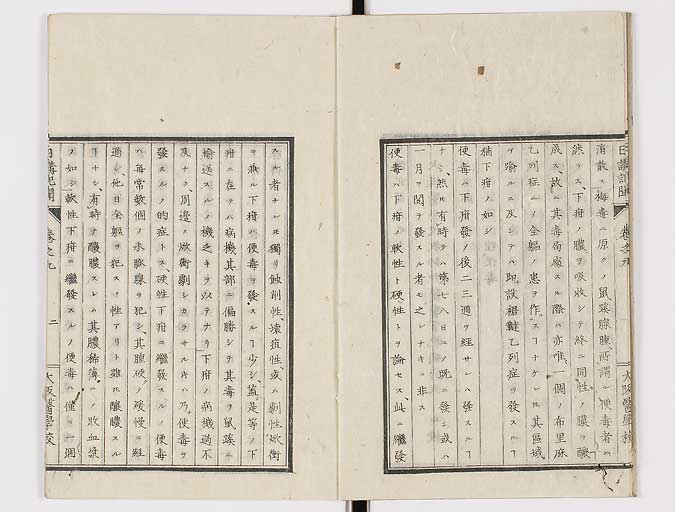 日講記聞 卷之九 大阪醫學校
消散ス梅毒ニ原クノ鼠蹊腺腫所謂ル便毒者ハ
然ラス、下疳ノ膿ヲ吸收シテ終ニ同性ノ膿ヲ釀
成ス、故ニ其毒局處スルノ際ハ亦唯一個ノ布里麻
乙列症ニノ全軀ノ患ヲ作スヿナケレ𪜈其區域
ヲ踰ルニ及ンテハ即設 乙列症ヲ發スルヿ
猶下疳ノ如シ
便毒ハ下疳發メ後二三週ヲ經サレハ發スルヿ
ナシ、然𪜈有時テハ第七八日ニノ既ニ發シ或ハ
一月ヲ閲テ發スル者モ之レナキニ非ス
便毒ハ下疳ノ軟性ト硬性トヲ論セス、此ニ繼發
スル者ナレ𪜈獨リ蝕削性、壞疽性、或ハ劇性焮衝
ヲ兼ル下疳ハ便毒ヲ發スルヿ少シ蓋是等ノ下
疳ニ在テハ病機其部ニ偏勝シテ其毒ヲ鼠蹊ニ
輸送スルノ機乏キヲ以テナリ下疳ノ病機過不
及ナク、周邊ノ焮衝劇シカラサルキハ乃便毒ヲ
發スルノ的症トス、硬性下疳ニ繼發スルノ便毒
ハ每常數個ノ水脈腺ヲ犯シ、其腺硬ノ緩慢ニ經
過シ他日全軀ヲ犯スノ性アリト雖𪜈釀膿スル
ヿナシ、有時テ釀膿スレハ其膿稀薄ニノ敗血漿
ノ如シ軟性下疳ニ繼發スルノ便毒ハ僅ニ一個
日講記聞 卷之九 二 大阪醫學校